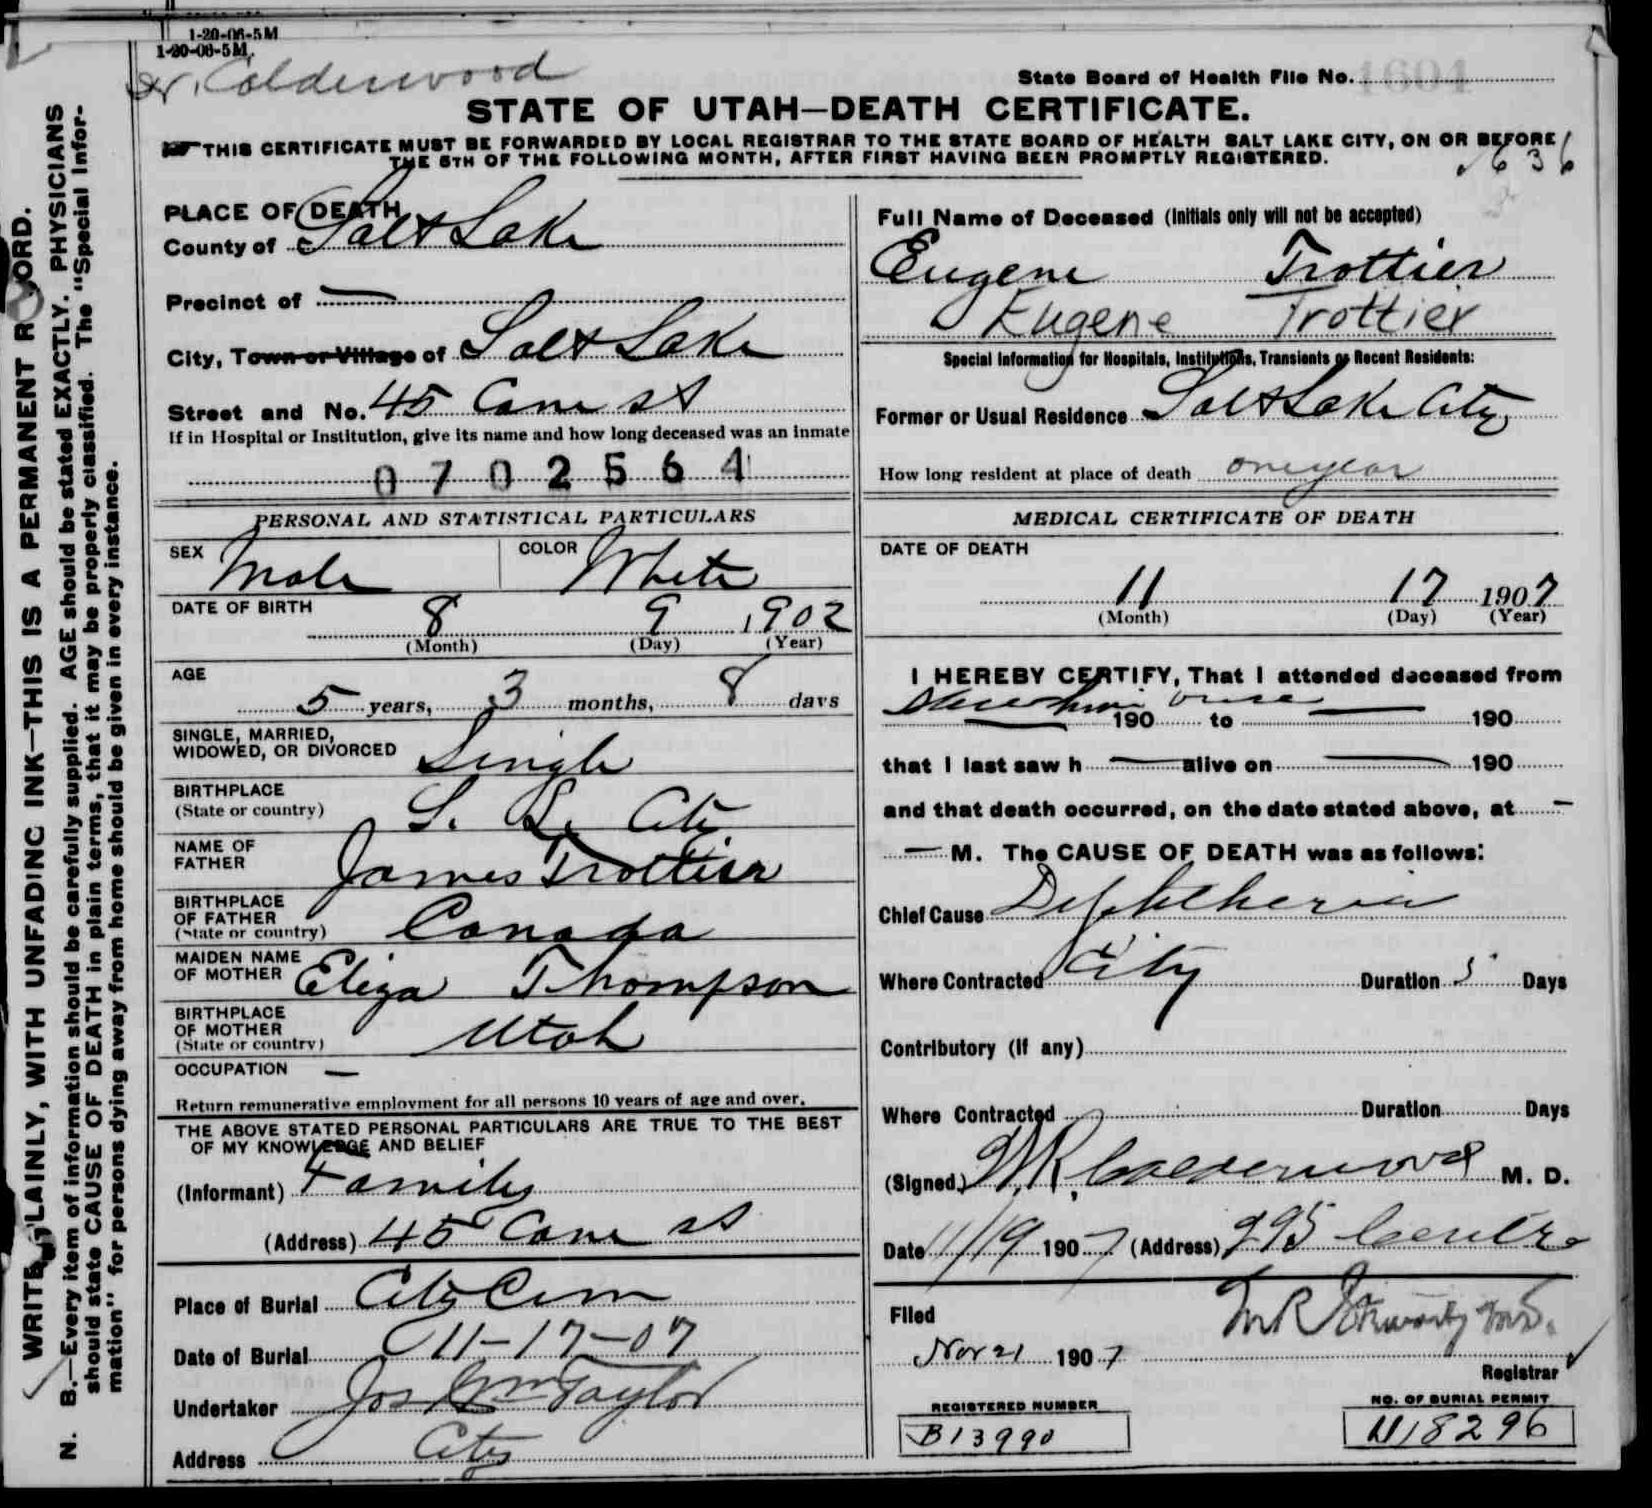 1-20-06-5M
1-20-06-5M.
Dr. Calderwood
State Board of Health File No. 1604
STATE OF UTAH—DEATH CERTIFICATE.
THIS CERTIFICATE MUST BE FORWARDED BY LOCAL REGISTRAR TO THE STATE BOARD OF HEALTH SALT LAKE CITY, ON OR BEFORE
THE 5TH OF THE FOLLOWING MONTH, AFTER FIRST HAVING BEEN PROMPTLY REGISTERED.
1636
WRITE PLAINLY, WITH UNFADING INK—THIS IS A PERMANENT RECORD.
N. B.—Every item of information should be carefully supplied. AGE should be stated EXACTLY. PHYSICIANS
should state CAUSE OF DEATH in plain terms, that it may be properly classified. The "Special Infor-
mation" for persons dying away from home should be given in every instance.
PLACE OF DEATH
County of Salt Lake
Precinct of —
City, Town or Village of Salt Lake
Street and No. 45 Cane st
If in Hospital or Institution, give its name and how long deceased was an inmate
0702564
PERSONAL AND STATISTICAL PARTICULARS
SEX Male COLOR White
DATE OF BIRTH 8 9 1902
(Month) (Day) (Year)
AGE
5 years, 3 months, 8 days
SINGLE, MARRIED,
WIDOWED, OR DIVORCED Single
BIRTHPLACE
(State or country) S. L. City
NAME OF
FATHER James Trottier
BIRTHPLACE
OF FATHER
(State or country) Canada
MAIDEN NAME
OF MOTHER Eliza Thompson
BIRTHPLACE
OF MOTHER
(State or country) Utah
OCCUPATION —
Return remunerative employment for all persons 10 years of age and over.
THE ABOVE STATED PERSONAL PARTICULARS ARE TRUE TO THE BEST
OF MY KNOWLEDGE AND BELIEF
(Informant) Family
(Address) 45 Cane st
Place of Burial City Cem
Date of Burial 11-17-07
Undertaker Jos Wm Taylor
Address City
Full Name of Deceased (Initials only will not be accepted)
Eugene Trottier
Eugene Trottier
Special Information for Hospitals, Institutions, Transients or Recent Residents:
Former or Usual Residence Salt Lake City
How long resident at place of death one year
MEDICAL CERTIFICATE OF DEATH
DATE OF DEATH
11 17 1907
(Month) (Day) (Year)
I HEREBY CERTIFY, That I attended deceased from
Saw him once
— 190 to — 190
that I last saw h — alive on — 190
and that death occurred, on the date stated above, at —
— M. The CAUSE OF DEATH was as follows:
Chief Cause Diphtheria
Where Contracted City Duration 5 Days
Contributory (If any)
Where Contracted Duration Days
(Signed) W.R. Calderwood M. D.
Date 11/19 1907 (Address) 295 Centre
Filed
Nov 21 1907
Registrar
REGISTERED NUMBER
B13990
NO. OF BURIAL PERMIT